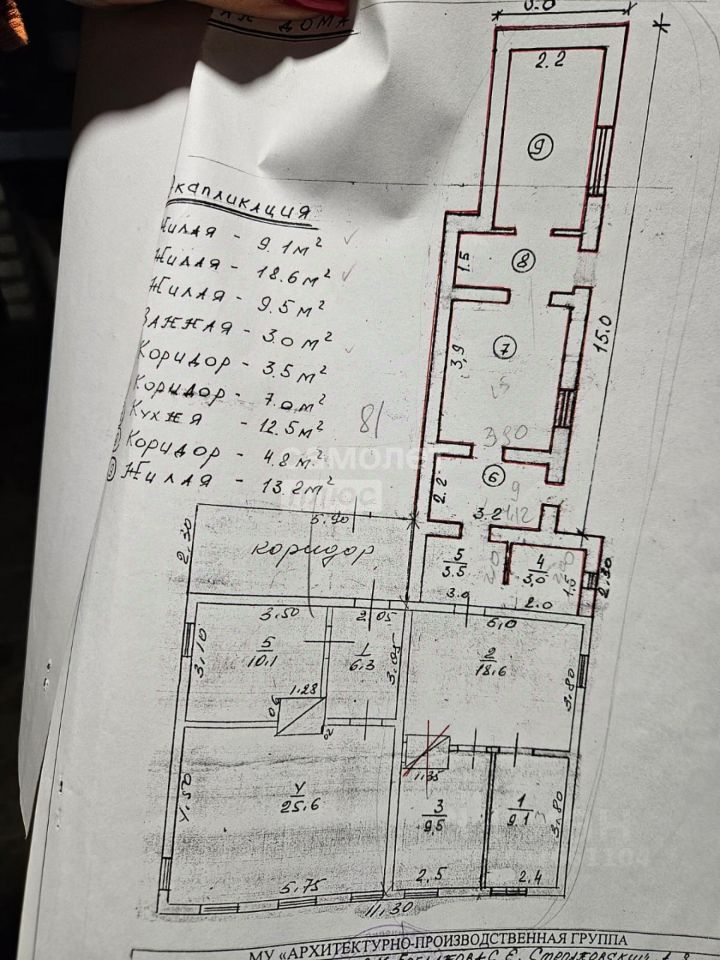 ДОМА
Экапликация
Жилая - 9.1 м²
Жилая - 18.6 м²
Жилая - 9.5 м²
Ванная - 3.0 м²
Коридор - 3.5 м²
Коридор - 7.0 м²
Кухня - 12.5 м²
Коридор - 4.8 м²
Жилая - 13.2 м²
81
самолет
плюс
2.2
9
1.5
8
15.0
3,9
7
3.90
6
2.2
9
3.2
4.12
5.90
2,30
коридор
5
3.5
4
3,0
1.5
2.30
3.0
2.0
3.50
2.05
6,0
3.10
5
10.1
1
6.3
3.05
2
18.6
3.80
1.28
1.35
4.50
4
25.6
3
9.5
1
9.1
3.80
5.75
2.5
2.4
11.30
МУ «АРХИТЕКТУРНО-ПРОИЗВОДСТВЕННАЯ ГРУППА